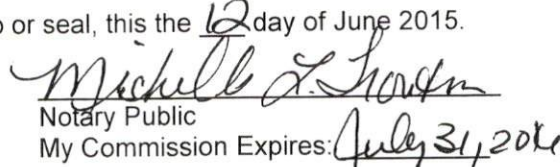 or seal, this the 12 day of June 2015.
Michelle L.
Notary Public
My Commission Expires: July 31, 201